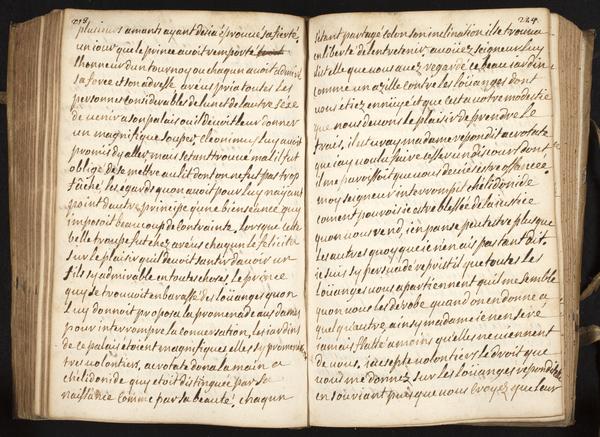 218
plusieurs amants ayant desia éprouvé sa fierté
un iour que le prince avoit remporté
lhonneur dun tournoy ou chaqun avoit admiré
sa force et son adresse arcus pria toutes les
personnes considerables de lun et de lautre sexe
de venir a son palais ou il devoit leur donner
un magnifique souper, cleonimus luy avoit
promis dy aller mais setant trouvé mal il fut
obligé de se mettre au lit dont on ne fut pas trop
faché, les egards quon avoit pour luy nayant
point dautre principe qune bienseance quy
imposoit beaucoup de contrainte. lorsque cete
belle troupe fut chez arcus chaqun le felicita
sur le plaisir quil devoit santir davoir un
fils sy admirable en toutes choses, le prince
quy se trouvoit enbarassé des loüanges quon
luy donnoit proposa la promenade aux dames
pour interrompre la conversation, les iardins
de ce palais etoient magnifiques elles sy promene
tres volontiers, acrotate dona la main a
chelidonide quy etoit distinguée par sa
naissance comme par sa beauté, chaqun
219
setant partagé selon son inclination il se trouva
en liberté de lentretenir, avoüez seigneur luy
dit elle que vous avez regardé ce beau iardin
comme un azille contre les loüanges dont
vous etiez ennuyé et que cest a votre modestie
que nous devons le plaisir de prendre le
frais, il est vray madame repondit acrotate
que iay voulu faire cesser un discours dont
il me paroissoit que vous deviez estre offencée
moy seigneur interrompit chelidonide
coment pourois ie estre blessée de la iustice
quon vous rend, ien panse peutestre plus que
les autres quoy que ie nen ais pas tant dit.
ie suis sy persuadé reprit il que toutes les
loüanges vous apartiennent quil me semble
quon vous les derobe quand on en donne a
quelquautre, ainsy madame ie nen seré
iamais flatté a moins quelles ne viennent
de vous. iacsepte volontiers le droit que
vous me donnez sur les loüanges repondit elle
en souriant puis que vous croyez que leur